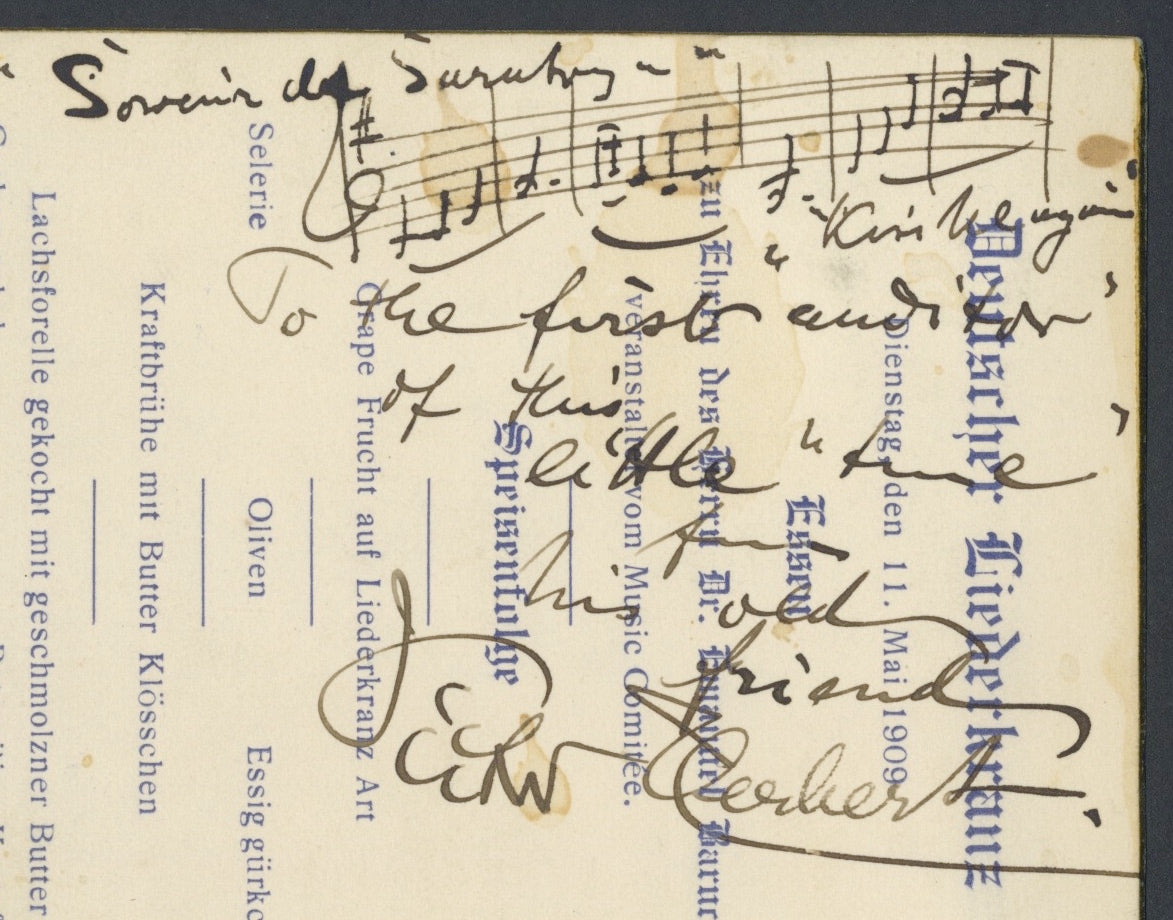 "Kiss Me again"
To the first auditor
of this
little "tune"
from
his old
friend
Victor Herbert.
Deutscher Liederkranz
Dienstag, den 11. Mai 1909
Essen
zu Ehren des Herrn Dr.
veranstaltet vom Music Comitée.
Speisenfolge
Grape Frucht auf Liederkranz Art
Selerie Oliven Essig gürkc
Kraftbrühe mit Butter Klösschen
Lachsforelle gekocht mit geschmolzner Butter